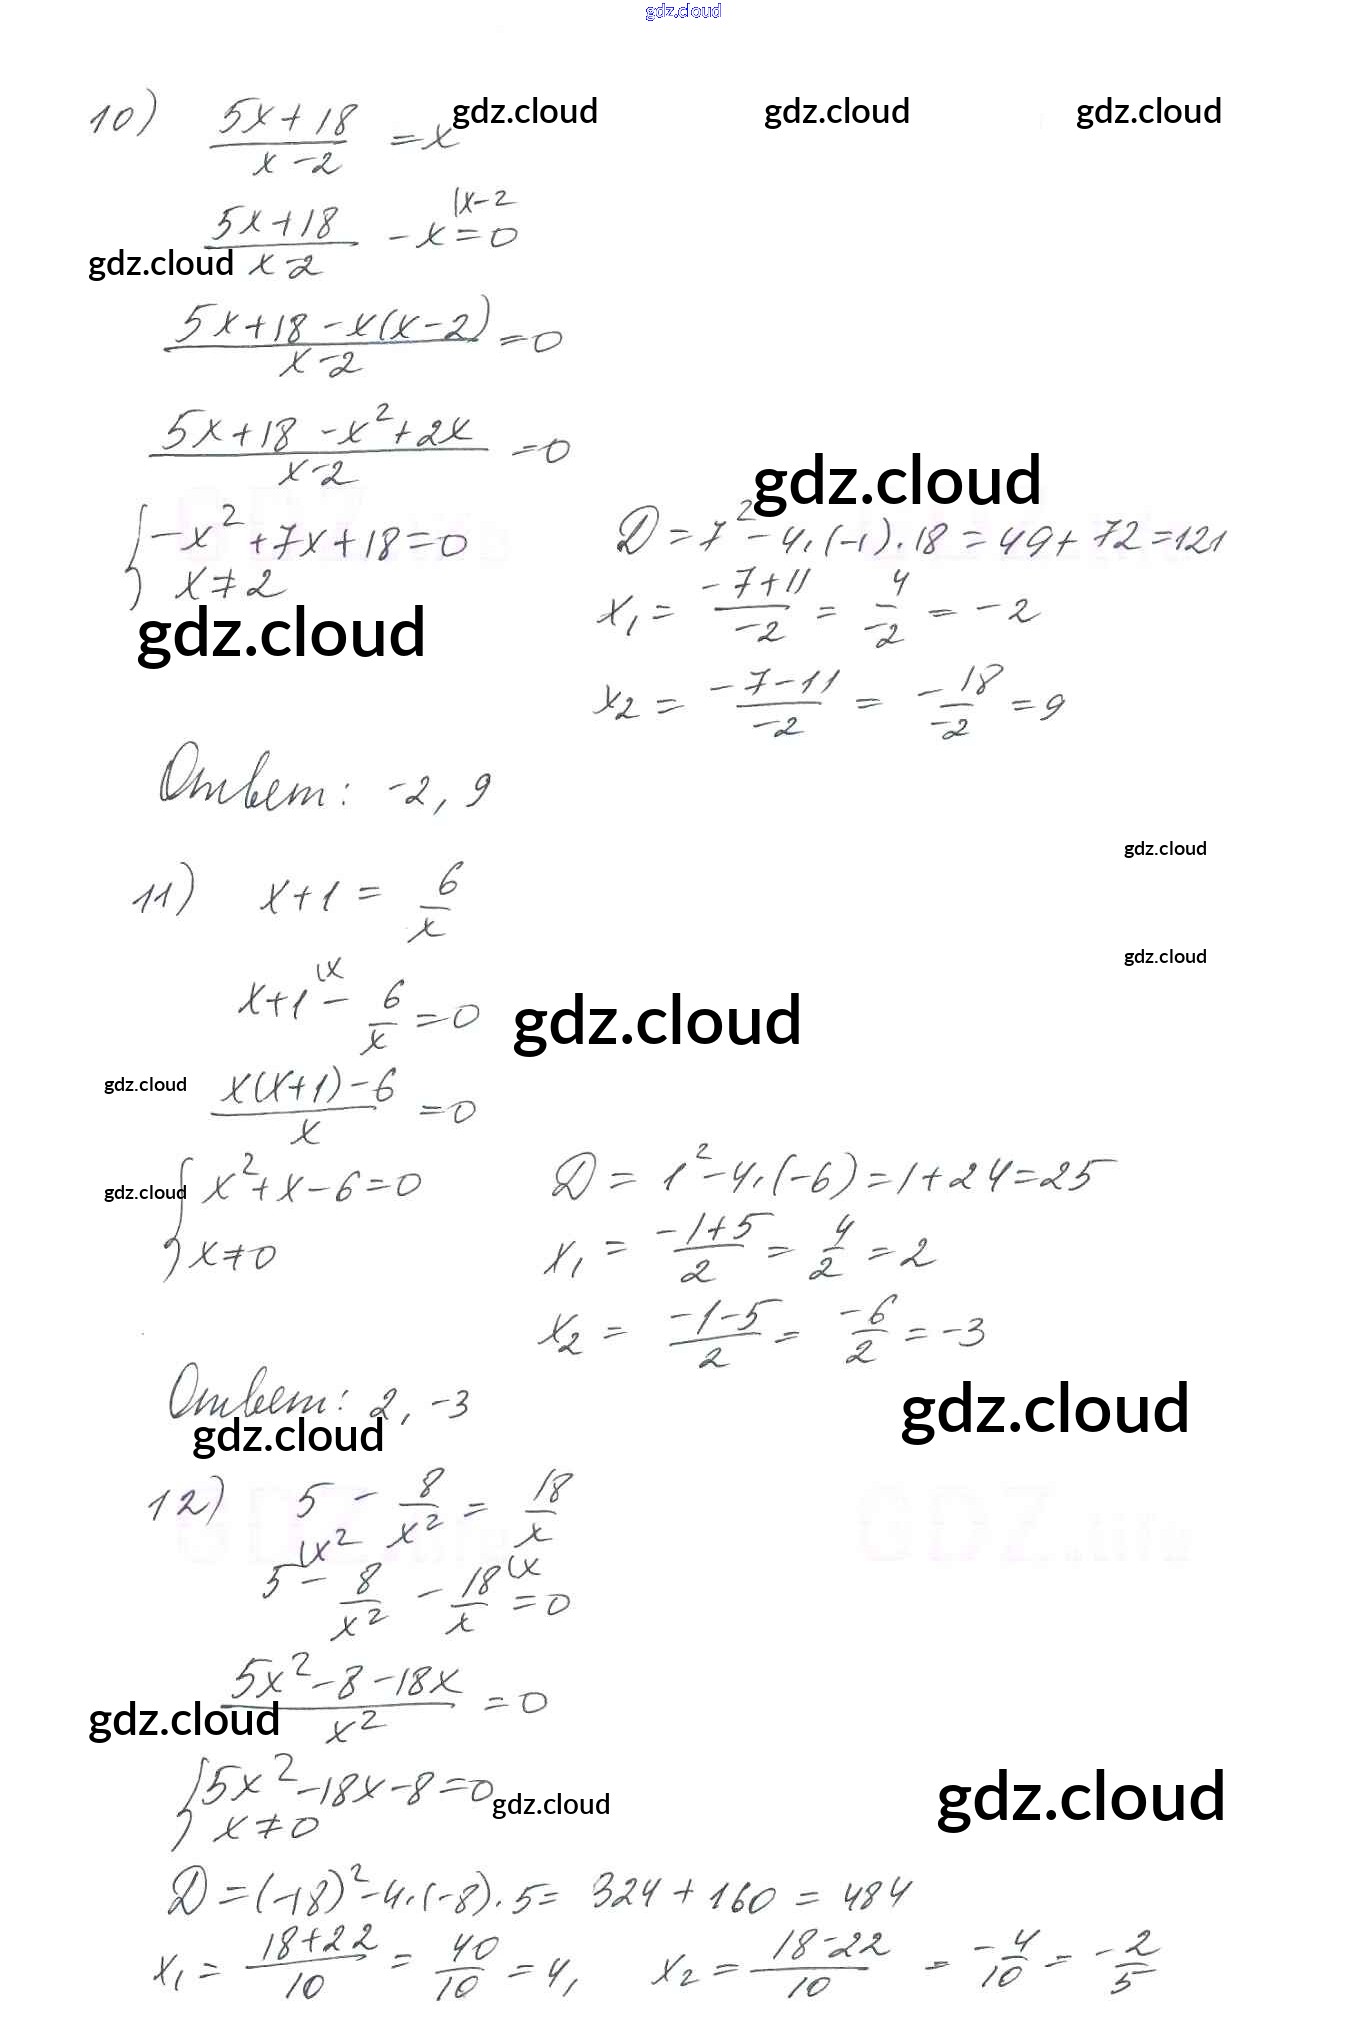 gdz.cloud
10) (5x+18)/(x-2) = x
gdz.cloud gdz.cloud gdz.cloud
(5x+18)/(x-2) - x |x-2 = 0
gdz.cloud
(5x+18-x(x-2))/(x-2) = 0
(5x+18-x²+2x)/(x-2) = 0
gdz.cloud
{ -x²+7x+18=0
x≠2
D = 7²-4·(-1)·18 = 49+72=121
x₁ = (-7+11)/(-2) = 4/(-2) = -2
gdz.cloud
x₂ = (-7-11)/(-2) = -18/-2 = 9
Ответ: -2, 9
gdz.cloud
11) x+1 = 6/x
gdz.cloud
x+1 |x - 6/x = 0
gdz.cloud
gdz.cloud
(x(x+1)-6)/x = 0
gdz.cloud
{ x²+x-6=0
x≠0
D = 1²-4·(-6)=1+24=25
x₁ = (-1+5)/2 = 4/2 = 2
x₂ = (-1-5)/2 = -6/2 = -3
Ответ: 2, -3
gdz.cloud
gdz.cloud
12) 5 - 8/x² = 18/x
5 |x² - 8/x² - 18/x |x = 0
(5x²-8-18x)/x² = 0
gdz.cloud
{ 5x²-18x-8=0
x≠0
gdz.cloud
gdz.cloud
D = (-18)²-4·(-8)·5 = 324+160 = 484
x₁ = (18+22)/10 = 40/10 = 4, x₂ = (18-22)/10 = -4/10 = -2/5